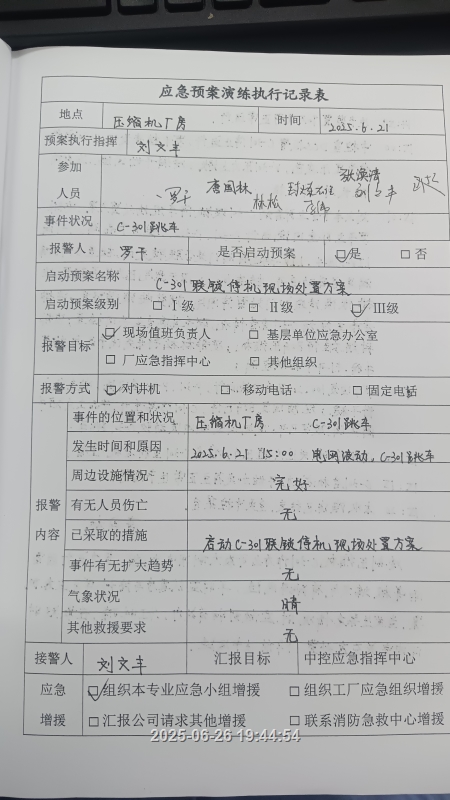 应急预案演练执行记录表
地点 压缩机厂房 时间 2025.6.21
预案执行指挥 刘文丰
参加人员 罗干 唐国林 林松 张溟清 刘文丰
事件状况 C-301跳车
报警人 罗干 是否启动预案 ☑是 □否
启动预案名称 C-301联锁停机现场处置方案
启动预案级别 □Ⅰ级 □Ⅱ级 ☑Ⅲ级
报警目标 ☑现场值班负责人 □基层单位应急办公室
□厂应急指挥中心 □其他组织
报警方式 ☑对讲机 □移动电话 □固定电话
报警内容
事件的位置和状况 压缩机厂房 C-301跳车
发生时间和原因 2025.6.21 15:00 电网波动,C-301跳车
周边设施情况 完好
有无人员伤亡 无
已采取的措施 启动C-301联锁停机现场处置方案
事件有无扩大趋势 无
气象状况 晴
其他救援要求 无
接警人 刘文丰 汇报目标 中控应急指挥中心
应急增援 ☑组织本专业应急小组增援 □组织工厂应急组织增援
□汇报公司请求其他增援 □联系消防急救中心增援
2025-06-26 19:44:54